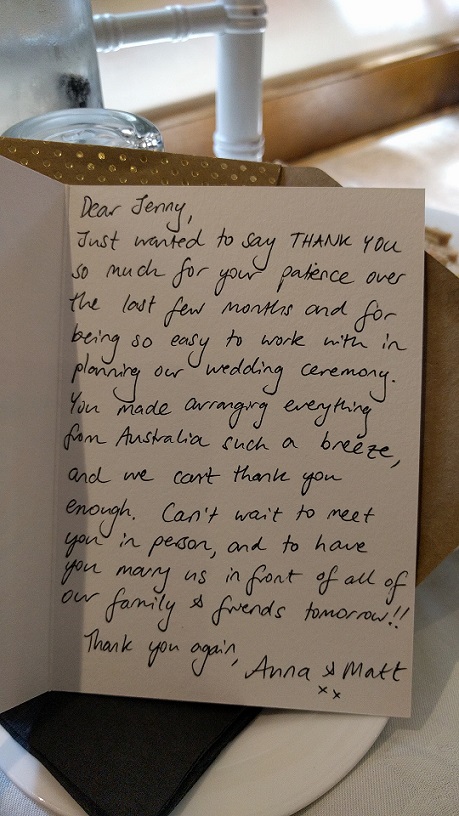 Dear Jenny,
Just wanted to say THANK YOU
so much for your patience over
the last few months and for
being so easy to work with in
planning our wedding ceremony.
You made arranging everything
from Australia such a breeze,
and we can't thank you
enough. Can't wait to meet
you in person, and to have
you marry us in front of all of
our family & friends tomorrow!!
Thank you again,
Anna & Matt
xx